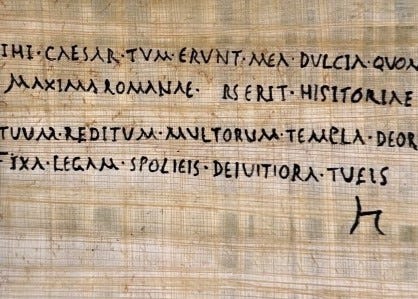 IHI·CAESAR·TVM·ERUNT·MEA·DULCIA·QUOM
MAXIMA ROMANAE· RSERIT·HISITORIAE
TUUM·REDITUM·MULTORUM·TEMPLA·DEOR
FIXA·LEGAM·SPOLIEIS·DEIUITIORA·TUEIS